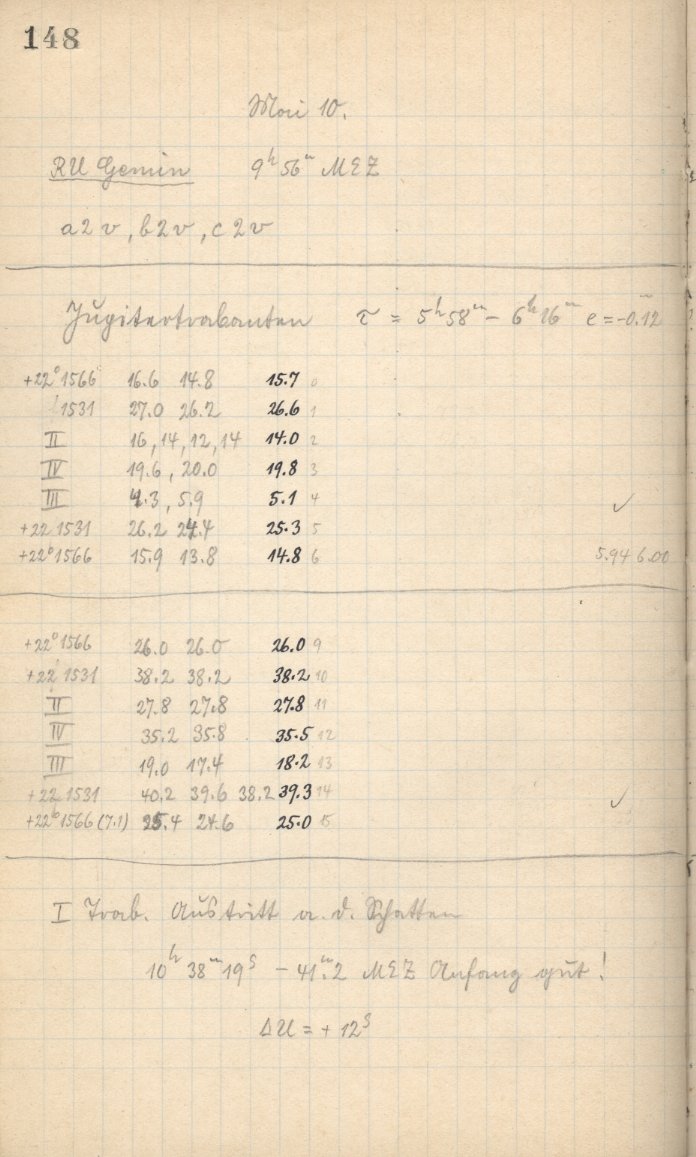 148
Mai 10.
RU Gemin 9h 56m MEZ
a 2 v, b 2 v, c 2 v
Jupitertrabanten τ = 5h 58m – 6h 26m e = -0.12
+22° 1566 16.6 14.8 15.7 0
1531 27.0 26.2 26.6 1
II 16, 14, 12, 14 14.0 2
IV 19.6, 20.0 19.8 3
III 4.3, 5.9 5.1 4 ✓
+22 1531 26.2 24.4 25.3 5
+22° 1566 15.9 13.8 14.8 6 5.94 6.00
+22° 1566 26.0 26.0 26.0 9
+22° 1531 38.2 38.2 38.2 10
II 27.8 27.8 27.8 11
IV 35.2 35.8 35.5 12
III 19.0 17.4 18.2 13
+22 1531 40.2 39.6 38.2 39.3 14 ✓
+22° 1566 (7.1) 25.4 24.6 25.0 15
I Trab. Austritt a. d. Schatten
10h 38m 19s – 41m.2 MEZ Anfang gut!
ΔU = + 12s